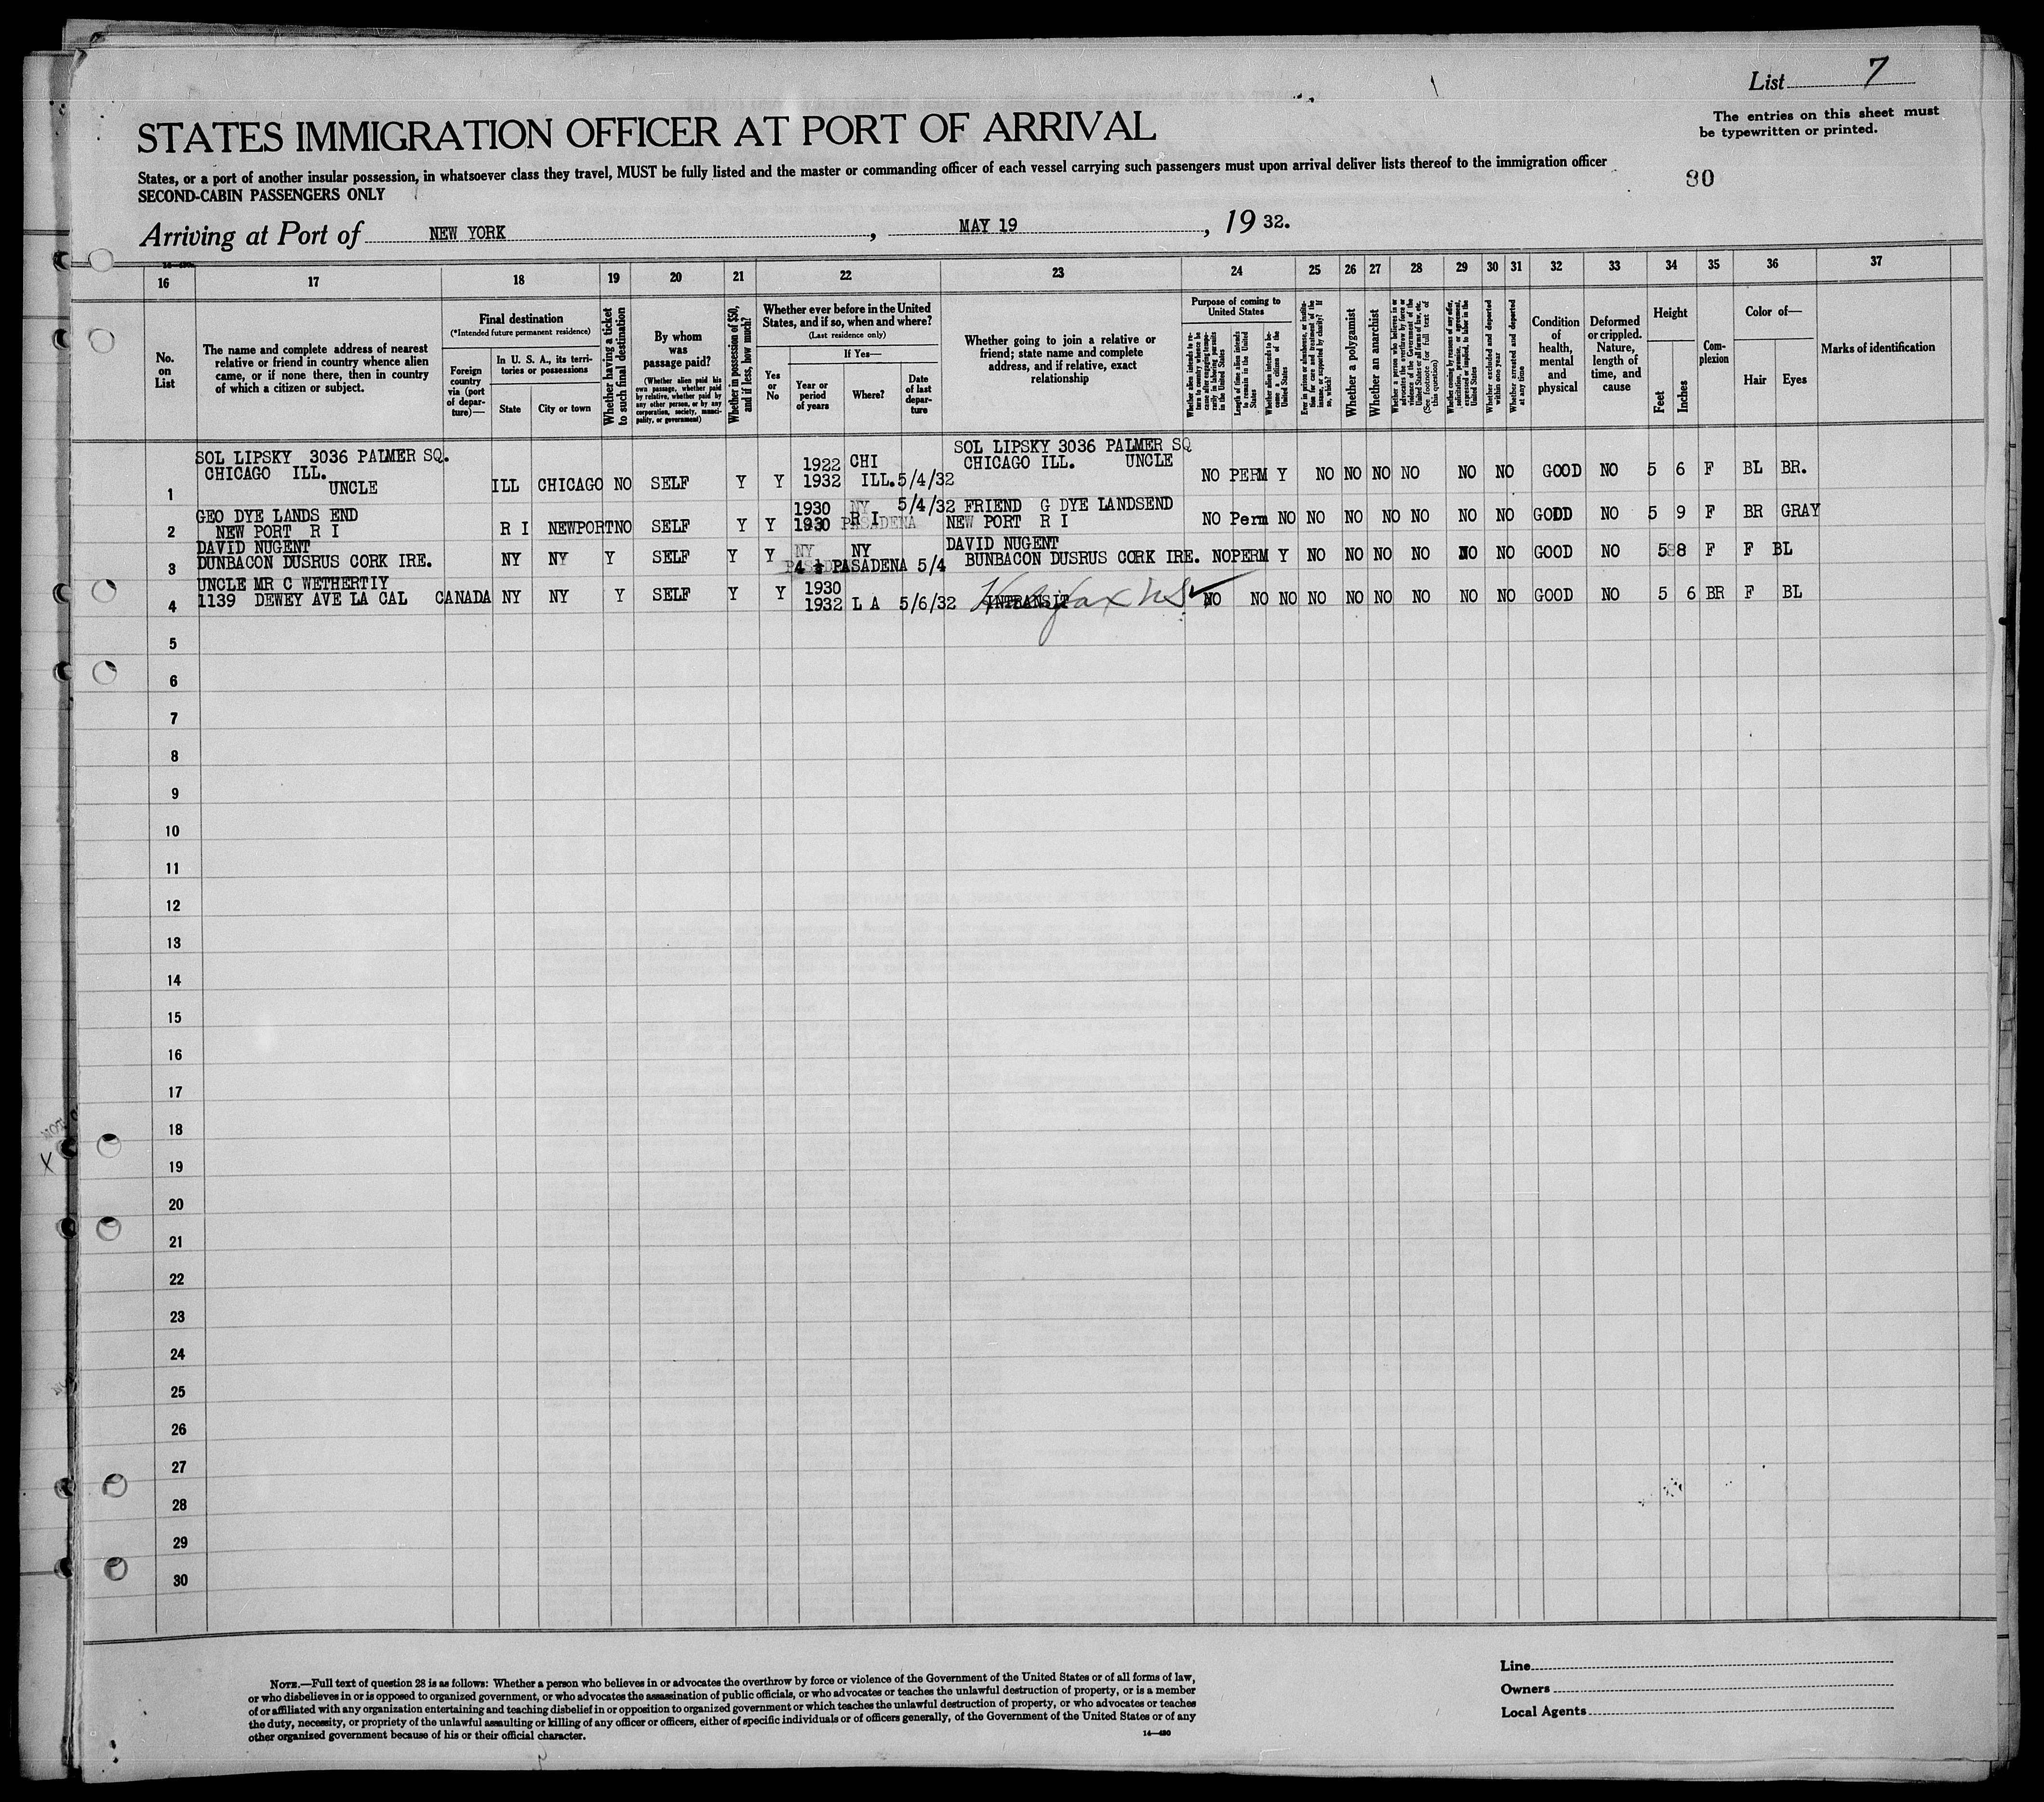 List 7
The entries on this sheet must
be typewritten or printed.
STATES IMMIGRATION OFFICER AT PORT OF ARRIVAL
States, or a port of another insular possession, in whatsoever class they travel, MUST be fully listed and the master or commanding officer of each vessel carrying such passengers must upon arrival deliver lists thereof to the immigration officer
SECOND-CABIN PASSENGERS ONLY
80
Arriving at Port of NEW YORK, MAY 19, 1932.
16 17 18 19 20 21 22 23 24 25 26 27 28 29 30 31 32 33 34 35 36 37
No. on List
The name and complete address of nearest
relative or friend in country whence alien
came, or if none there, then in country
of which a citizen or subject.
Final destination
(*Intended future permanent residence)
Foreign country via (port of departure)—
In U. S. A., its territories or possessions
State
City or town
Whether having a ticket to such final destination
By whom was passage paid?
(Whether alien paid his own passage, whether paid by relative, whether paid by any other person, or by any corporation, society, municipality, or government)
Whether in possession of $50, and if less, how much?
Whether ever before in the United
States, and if so, when and where?
(Last residence only)
Yes or No
If Yes—
Year or period of years
Where?
Date of last departure
Whether going to join a relative or
friend; state name and complete
address, and if relative, exact
relationship
Purpose of coming to United States
Whether alien intends to return to country whence he came after engaging temporarily in laboring pursuits in the United States
Length of time alien intends to remain in the United States
Whether alien intends to become a citizen of the United States
Ever in prison or almshouse, or institution for care and treatment of the insane, or supported by charity? If so, which?
Whether a polygamist
Whether an anarchist
Whether a person who believes in or advocates the overthrow by force or violence of the Government of the United States or all forms of law, etc. (See footnote for full text of this question)
Whether coming by reasons of any offer, solicitation, promise, or agreement, expressed or implied, to labor in the United States
Whether excluded and deported within one year
Whether arrested and deported at any time
Condition of health, mental and physical
Deformed or crippled. Nature, length of time, and cause
Height
Feet
Inches
Complexion
Color of—
Hair
Eyes
Marks of identification
SOL LIPSKY 3036 PALMER SQ. SOL LIPSKY 3036 PALMER SQ
CHICAGO ILL. 1922 CHI CHICAGO ILL. UNCLE
1 UNCLE ILL CHICAGO NO SELF Y Y 1932 ILL. 5/4/32 NO PERM Y NO NO NO NO NO NO GOOD NO 5 6 F BL BR.
GEO DYE LANDS END 1930 NY 5/4/32 FRIEND G DYE LANDSEND
2 NEW PORT R I R I NEWPORT NO SELF Y Y 1930 R I NEW PORT R I NO Perm NO NO NO NO NO NO NO GOOD NO 5 9 F BR GRAY
DAVID NUGENT NY NY DAVID NUGENT
3 DUNBACON DUSRUS CORK IRE. NY NY Y SELF Y Y PASADENA 5/4 BUNBACON DUSRUS CORK IRE. NO PERM Y NO NO NO NO NO NO GOOD NO 5 8 F F BL
UNCLE MR C WETHERTIY 1930
4 1139 DEWEY AVE LA CAL CANADA NY NY Y SELF Y Y 1932 L A 5/6/32 INTRANSIT Halifax NS NO NO NO NO NO NO NO NO NO GOOD NO 5 6 BR F BL
5
6
7
8
9
10
11
12
13
14
15
16
17
18
19
20
21
22
23
24
25
26
27
28
29
30
NOTE.—Full text of question 28 is as follows: Whether a person who believes in or advocates the overthrow by force or violence of the Government of the United States or of all forms of law,
or who disbelieves in or is opposed to organized government, or who advocates the assassination of public officials, or who advocates or teaches the unlawful destruction of property, or is a member
of or affiliated with any organization entertaining and teaching disbelief in or opposition to organized government or which teaches the unlawful destruction of property, or who advocates or teaches
the duty, necessity, or propriety of the unlawful assaulting or killing of any officer or officers, either of specific individuals or of officers generally, of the Government of the United States or of any
other organized government because of his or their official character. 14—430
Line
Owners
Local Agents